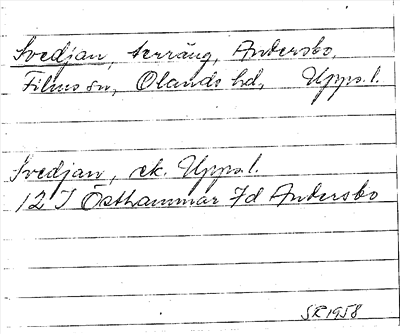 Svedjan, terräng, Andersbo,
Films sn, Olands hd, Upps.l.
Svedjan, ek. Upps.l.
12 I Östhammar 7d Andersbo
SR 1958